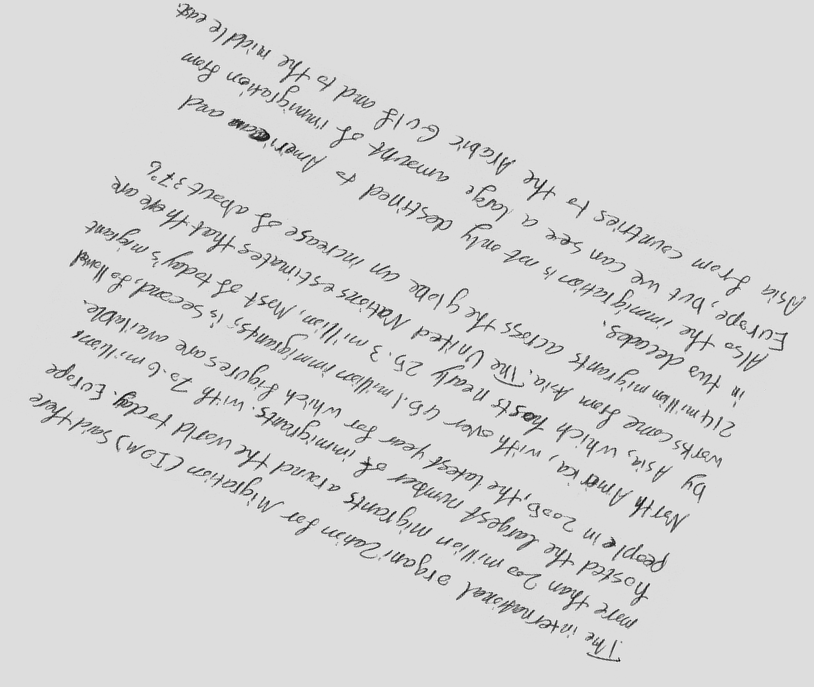 The international organization for Migration (IOM) said there
more than 200 million migrants around the world today. Europe
hosted the largest number of immigrants. with 70.6 millions
people in 2005, the latest year for which figures are available.
North America, with over 45.1 million immigrants, is second, followed
by Asia, which hosts nearly 25.3 million, Most of today's migrant
works come from Asia. The United Nations estimates that there are
214 million migrants across the globe an increase of about 37%
in two decades.
Also the immigration is not only destined to American and
Europe, but we can see a large amount of immigration from
Asia from countries to the Arabic Gulf and to the middle east.